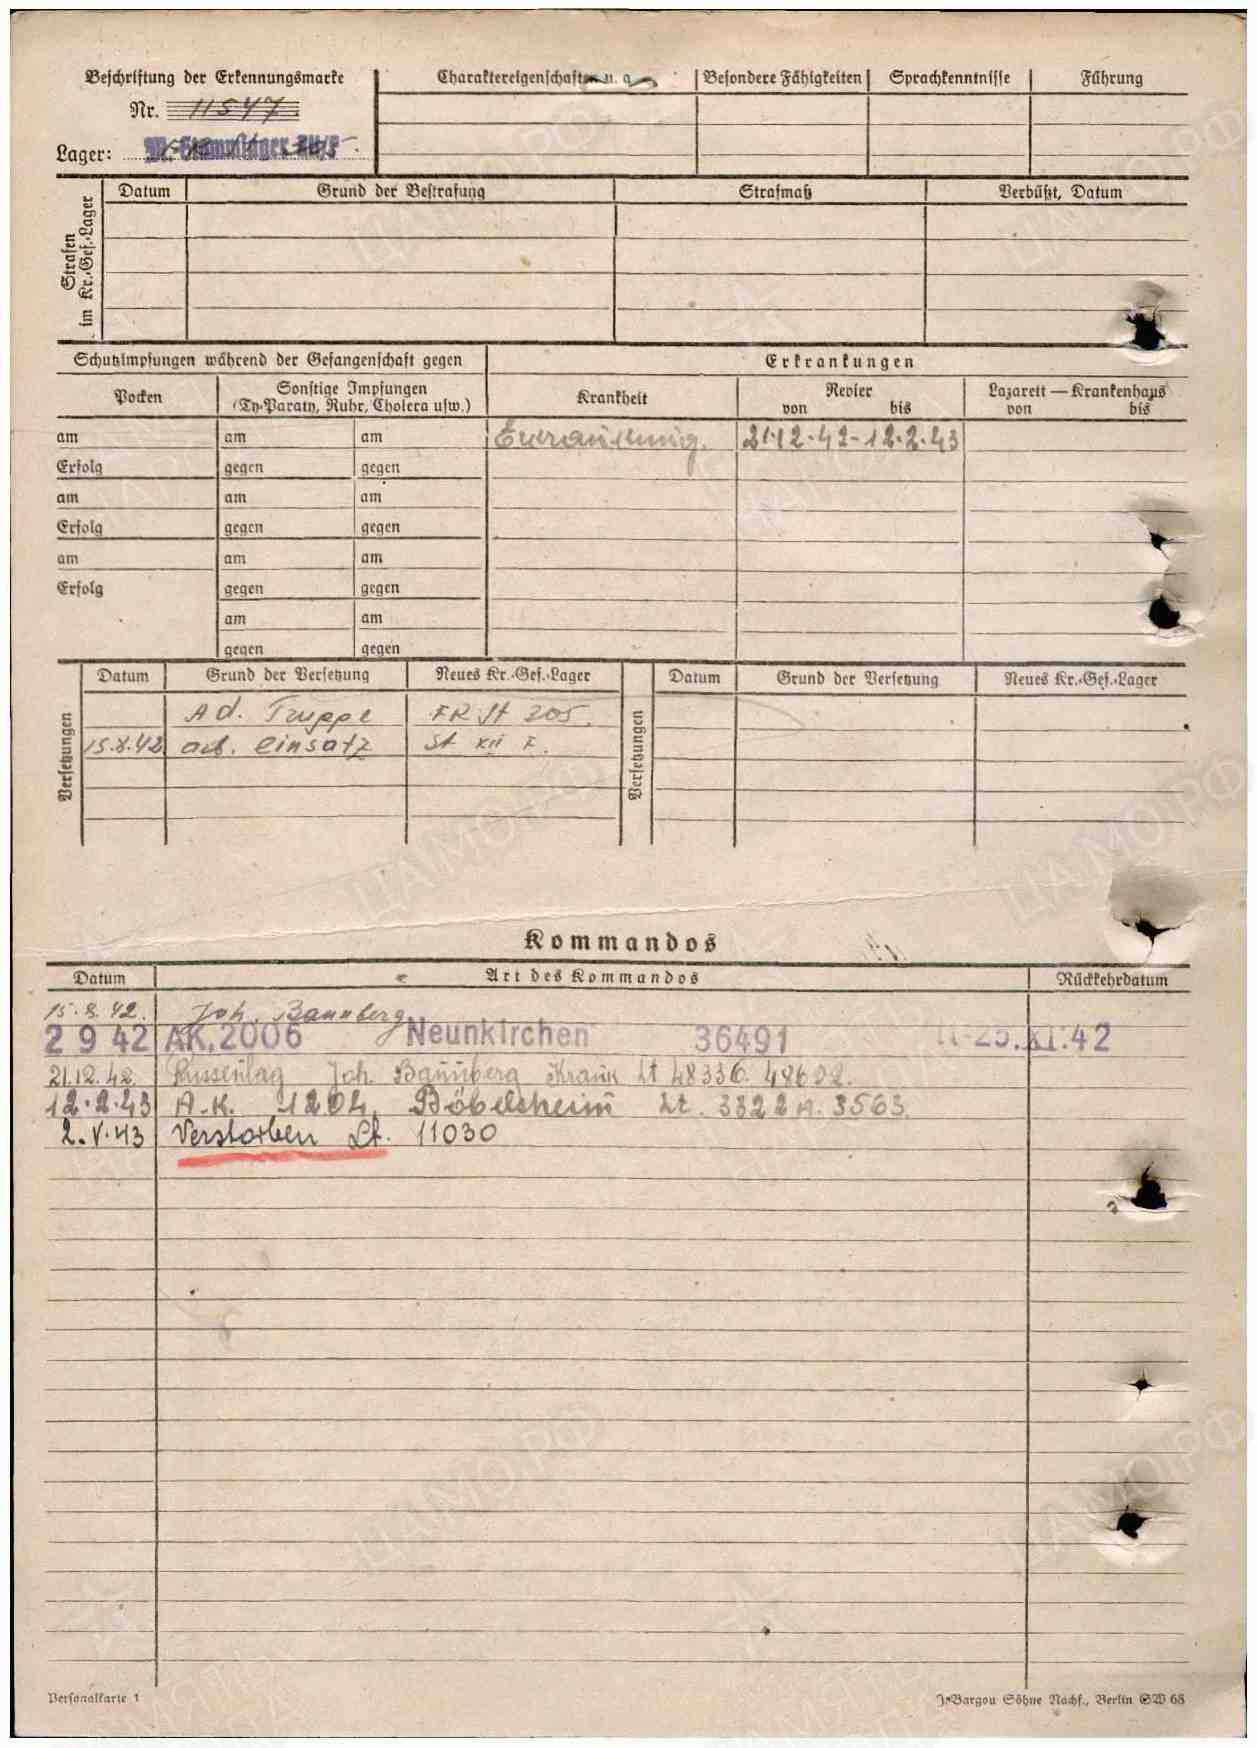 Beschriftung der Erkennungsmarke
Nr. 11547
Lager: M.-Stammlager XII/F
Charaktereigenschaften u. a. Besondere Fähigkeiten Sprachkenntnisse Führung
Strafen im Kr.-Gef.-Lager
Datum Grund der Bestrafung Strafmaß Verbüßt, Datum
Schutzimpfungen während der Gefangenschaft gegen Erkrankungen
Pocken Sonstige Impfungen Krankheit Revier Lazarett — Krankenhaus
(Ty-Paraty, Ruhr, Cholera usw.) von bis von bis
am am am 21.12.42-12.2.43
Erfolg gegen gegen
am am am
Erfolg gegen gegen
am am am
Erfolg gegen gegen
am am
gegen gegen
Versetzungen
Datum Grund der Versetzung Neues Kr.-Gef.-Lager
Ad. Truppe FR St 205.
15.8.42 arb. Einsatz St XII F.
Versetzungen
Datum Grund der Versetzung Neues Kr.-Gef.-Lager
Kommandos
Datum Art des Kommandos Rückkehrdatum
15.8.42. Joh. Bannberg
2 9 42 AK.2006 Neunkirchen 36491 25.XI.42
21.12.42. Russenlag Joh. Bannberg Krank Lt 48336. 48622.
12.2.43 A.K. 1204 Böbelsheim Lt. 3322 u. 3563
2.V.43 Verstorben Lt. 11030
Personalkarte 1
J. Bargou Söhne Nachf., Berlin SW 68
ЦАМО.РФ